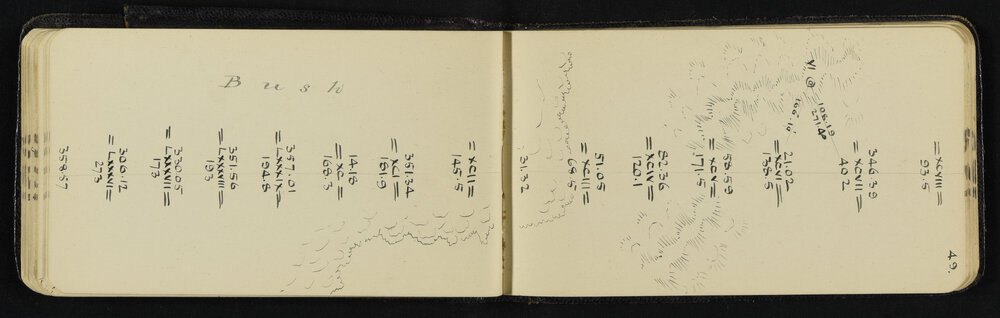 49.
= XCVIII =
93.5
346.39
= XCVII =
402
108.19
271.40
VI @
166.10
21.02
= XCVI =
138.5
55.59
= XCV =
171.5
82.36
= XCIV =
120.1
51.05
= XCIII =
68.5
31.32
= XCII =
145.5
351.34
= XCI =
181.9
14.18
= XC =
168.3
357.01
= LXXXIX =
194.8
Bush
351.56
= LXXXVIII =
193
330.05
= LXXXVII =
173
306.12
= LXXXVI =
273
358.57